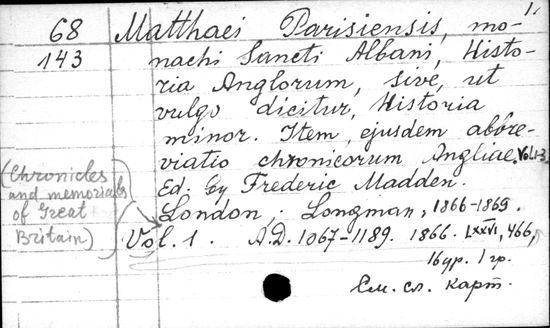 1.
68 Matthaei Parisiensis, mo-
143 nachi Sancti Albani, Histo-
ria Anglorum, sive, ut
vulgo dicitur, Historia
minor. Item, ejusdem abbre-
viatio chronicorum Angliae. Vol. 1-3
Ed. by Frederic Madden.
London, : Longman, 1866-1869.
(Chronicles
and memorials
of Great
Britain)
Vol. 1. A.D. 1067-1189. 1866. LXXVI, 466,
16 др. 1 гр.
См. сл. карт.